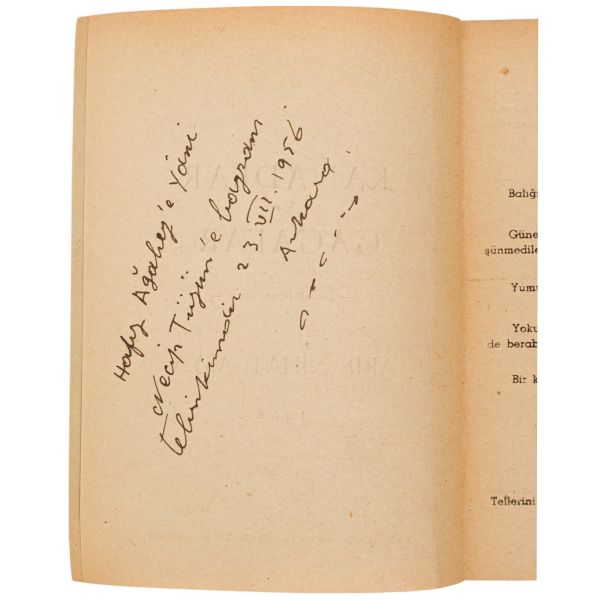 Hafız Ağabey'e Yâni
Necip Tüzün'e bayram
telrikimdir 23.VII.1956
Ankara
Balığ
Güne
şünmedile
Yumu
Yoku
de berab
Bir k
Tellerini